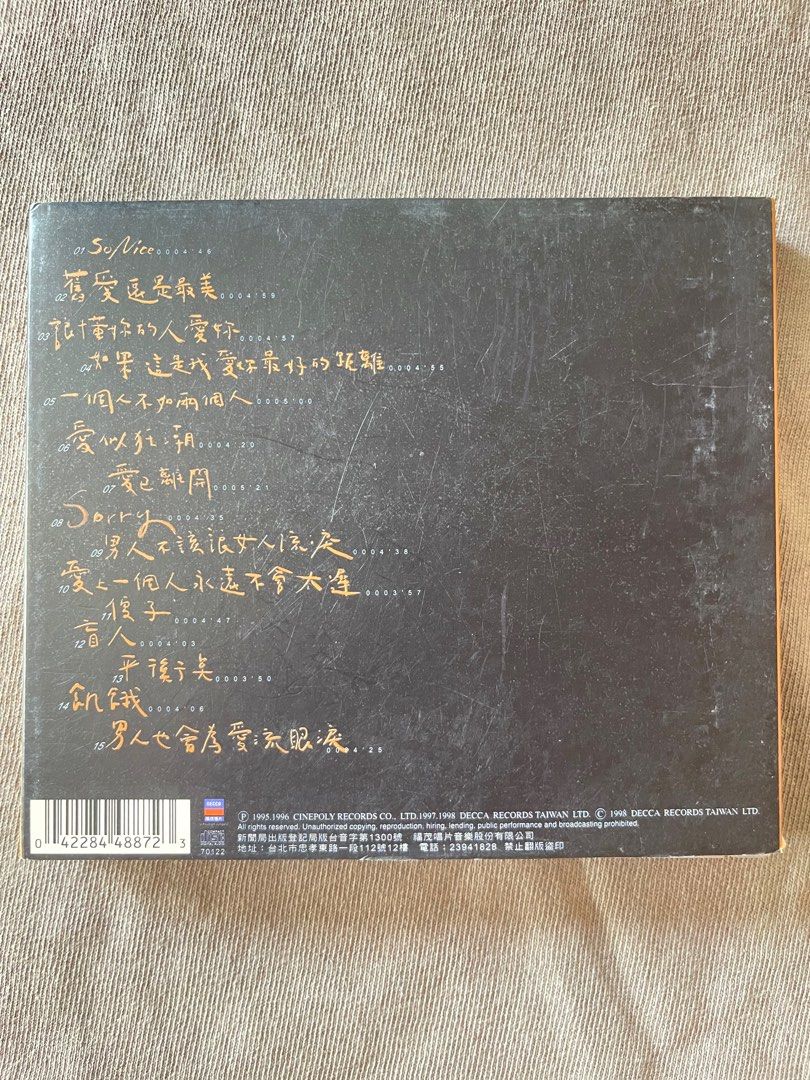 01 So Nice 0004:46
02 舊愛還是最美 0004:59
03 讓懂你的人愛你 0004:57
04 如果這是我愛你最好的距離 0004:55
05 一個人不如兩個人 0005:00
06 愛似狂潮 0004:20
07 愛已離開 0005:21
08 Sorry 0004:35
09 男人不該讓女人流淚 0004:38
10 愛上一個人永遠不會太遲 0003:57
11 傻子 0004:47
12 盲人 0004:03
13 平復 0003:50
14 飢餓 0004:06
15 男人也會為愛流眼淚 0004:25
DECCA
福茂唱片
0 42284 48872 3
COMPACT disc DIGITAL AUDIO
70122
Ⓟ 1995.1996 CINEPOLY RECORDS CO., LTD.1997.1998 DECCA RECORDS TAIWAN LTD. © 1998 DECCA RECORDS TAIWAN LTD.
All rights reserved. Unauthorized copying, reproduction, hiring, lending, public performance and broadcasting prohibited.
新聞局出版登記局版台音字第1300號 福茂唱片音樂股份有限公司
地址：台北市忠孝東路一段112號12樓 電話：23941828 禁止翻版盜印